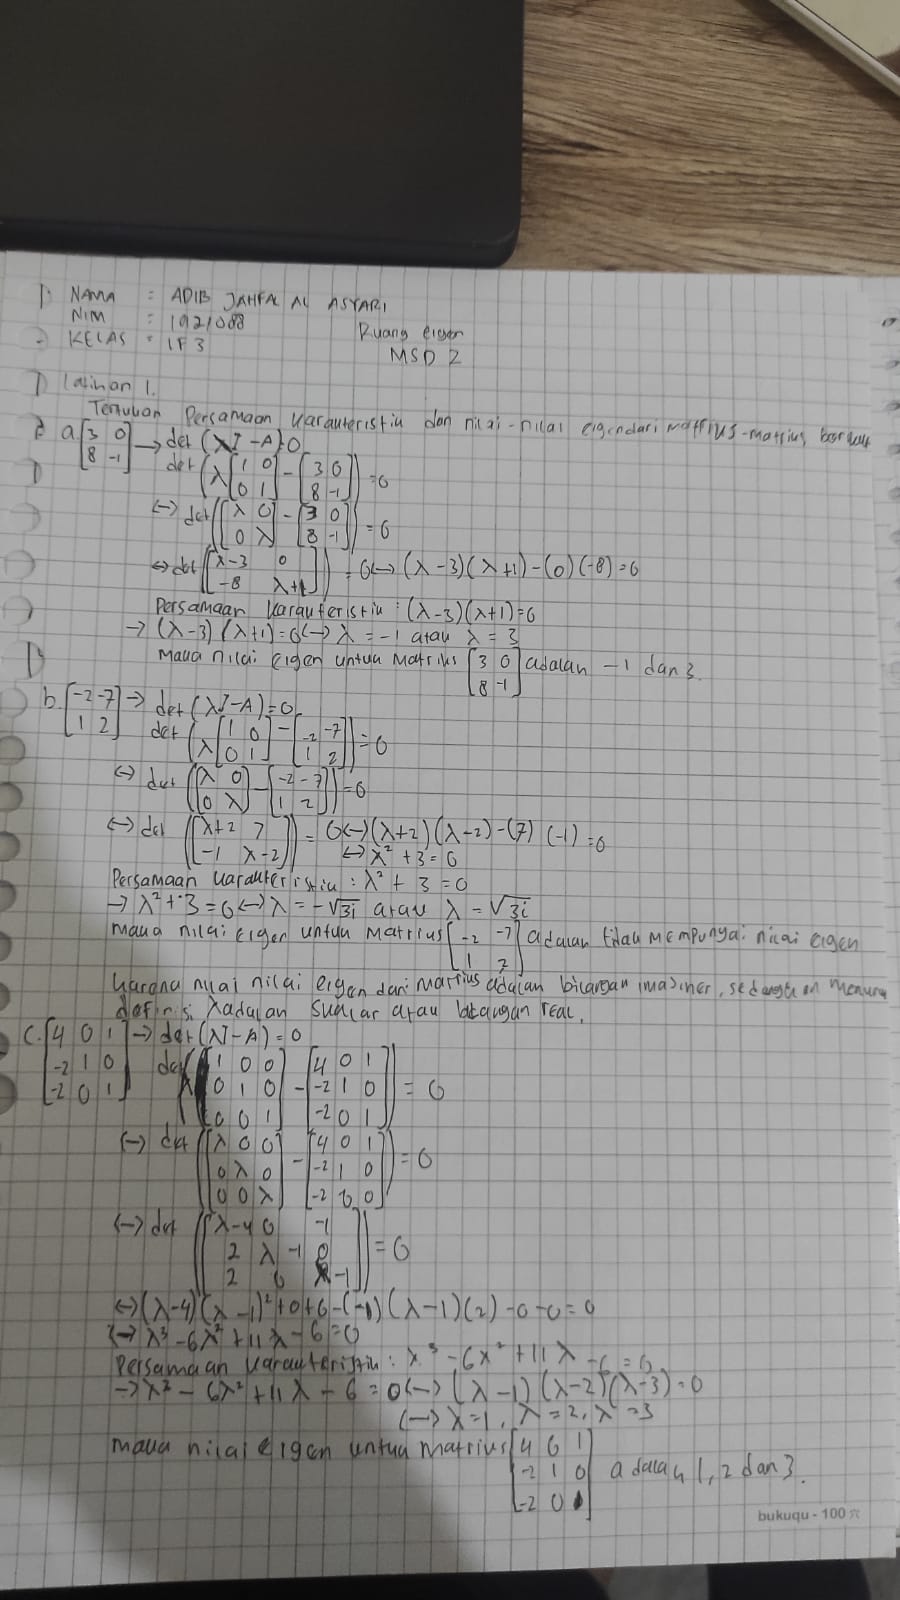 NAMA : ADIB JAHFAL AL ASYARI
NIM : 1921088
KELAS : IF 3
Ruang eigen
MSD 2
Latihan 1.
Tentukan Persamaan Karakteristik dan nilai-nilai eigen dari matriks-matriks berikut
a. [3 0; 8 -1] → det (λI - A) = 0
det (λ[1 0; 0 1] - [3 0; 8 -1]) = 0
↔ det ([λ 0; 0 λ] - [3 0; 8 -1]) = 0
↔ det ([λ-3 0; -8 λ+1]) = 0 ↔ (λ-3)(λ+1) - (0)(-8) = 0
Persamaan Karakteristik : (λ-3)(λ+1) = 0
→ (λ-3)(λ+1) = 0 ↔ λ = -1 atau λ = 3
Maka nilai Eigen untuk Matriks [3 0; 8 -1] adalah -1 dan 3.
b. [-2 -7; 1 2] → det (λI - A) = 0
det (λ[1 0; 0 1] - [-2 -7; 1 2]) = 0
↔ det ([λ 0; 0 λ] - [-2 -7; 1 2]) = 0
↔ det ([λ+2 7; -1 λ-2]) = 0 ↔ (λ+2)(λ-2) - (7)(-1) = 0
↔ λ² + 3 = 0
Persamaan Karakteristik : λ² + 3 = 0
→ λ² + 3 = 0 ↔ λ = -√3i atau λ = √3i
Maka nilai Eigen untuk Matriks [-2 -7; 1 2] adalah tidak mempunyai nilai eigen
Karena nilai nilai eigen dari matriks adalah bilangan imajiner, sedangkan menurut
definisi λ adalah skalar atau bilangan real.
C. [4 0 1; -2 1 0; -2 0 1] → det (λI - A) = 0
det (λ[1 0 0; 0 1 0; 0 0 1] - [4 0 1; -2 1 0; -2 0 1]) = 0
↔ det ([λ 0 0; 0 λ 0; 0 0 λ] - [4 0 1; -2 1 0; -2 0 0]) = 0
↔ det ([λ-4 0 -1; 2 λ-1 0; 2 0 λ-1]) = 0
↔ (λ-4)(λ-1)² + 0 + 0 - (-1)(λ-1)(2) - 0 - 0 = 0
↔ λ³ - 6λ² + 11λ - 6 = 0
Persamaan Karakteristik : λ³ - 6λ² + 11λ - 6 = 0
→ λ³ - 6λ² + 11λ - 6 = 0 ↔ (λ-1)(λ-2)(λ-3) = 0
↔ λ = 1, λ = 2, λ = 3
Maka nilai eigen untuk matriks [4 0 1; -2 1 0; -2 0 1] adalah 1, 2 dan 3.
bukuqu - 100